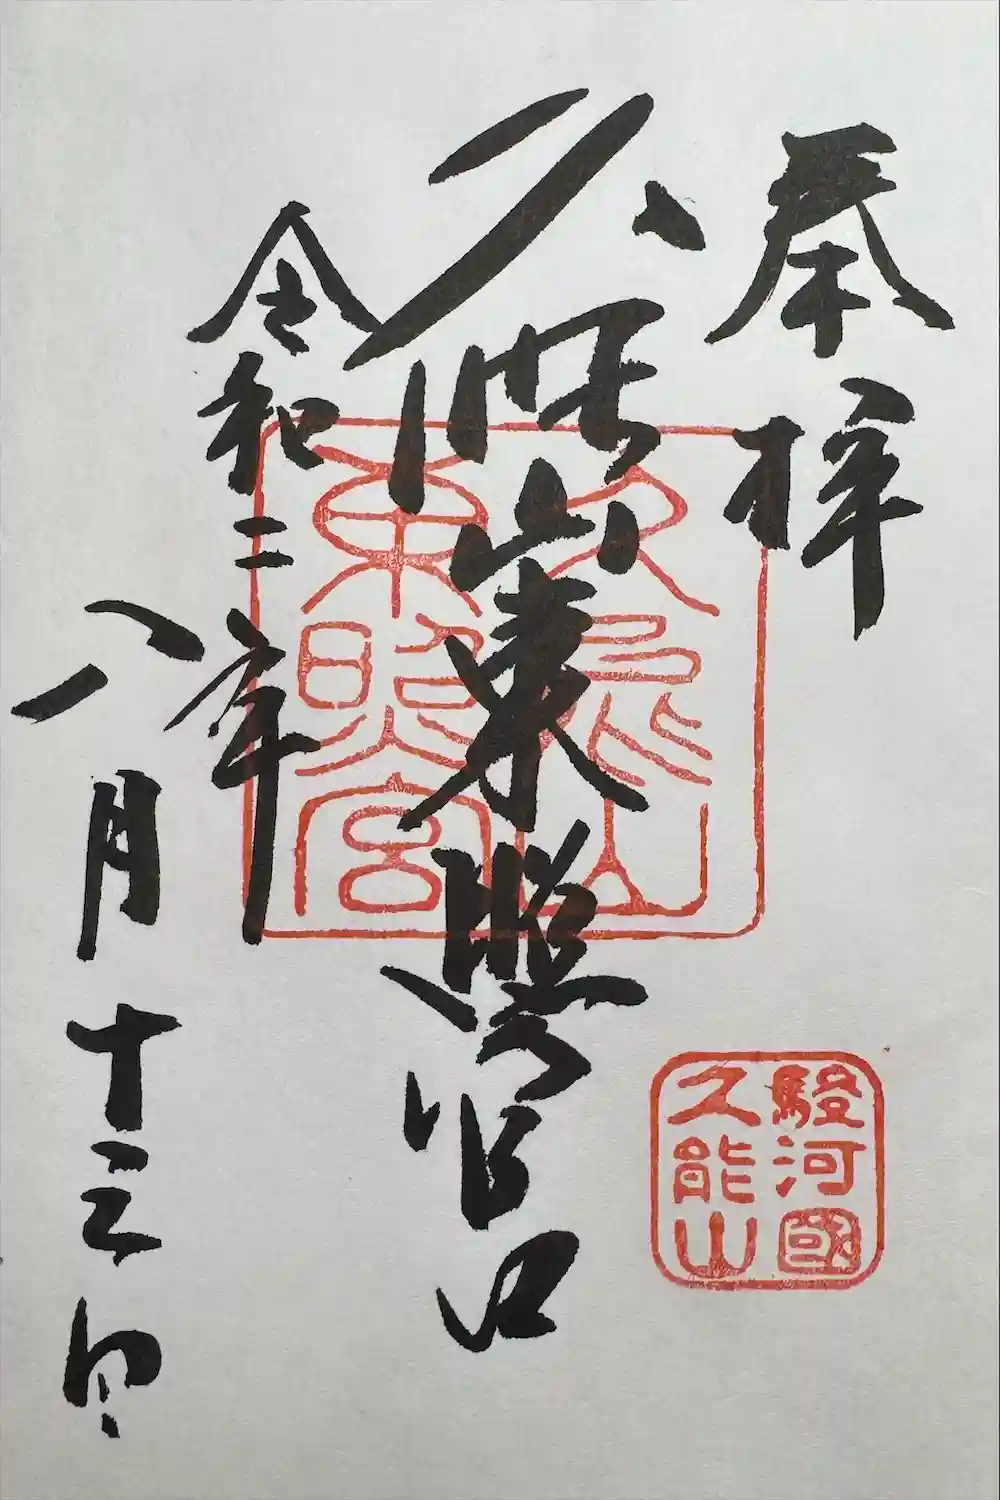 奉拝
久能山東照宮
令和二年
八月十三日
久能山
東照宮
駿河國
久能山